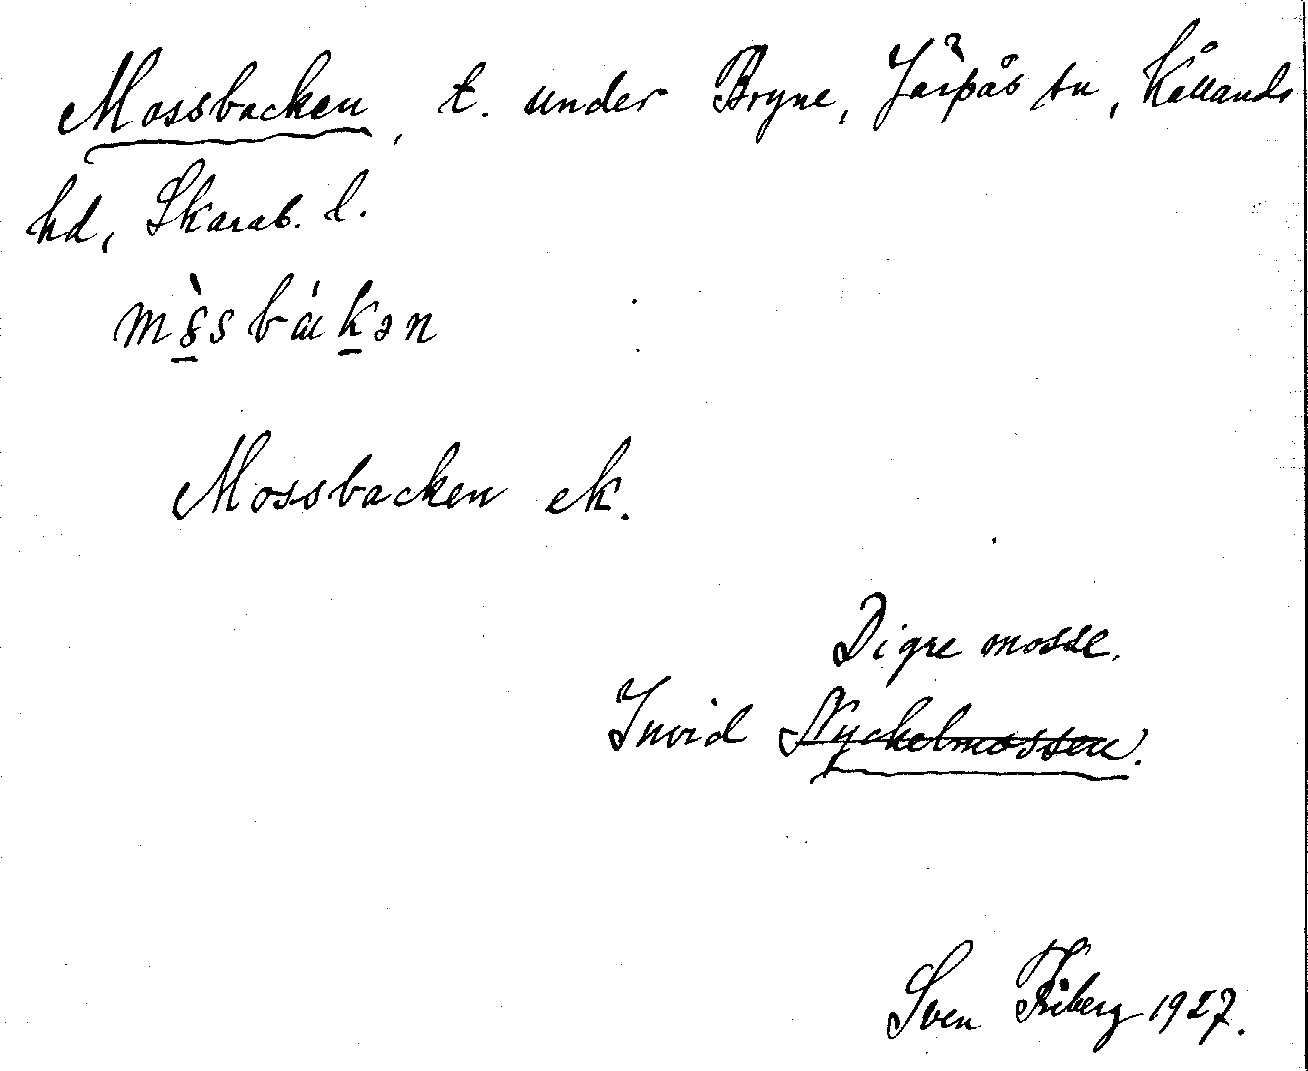 Mossbacken, t. under Bryne, Järpås sn, Kållands
hd, Skarab. l.
Mossbacken ek.
Digre mosse.
Invid Nyckelmossen.
Sven Friberg 1927.